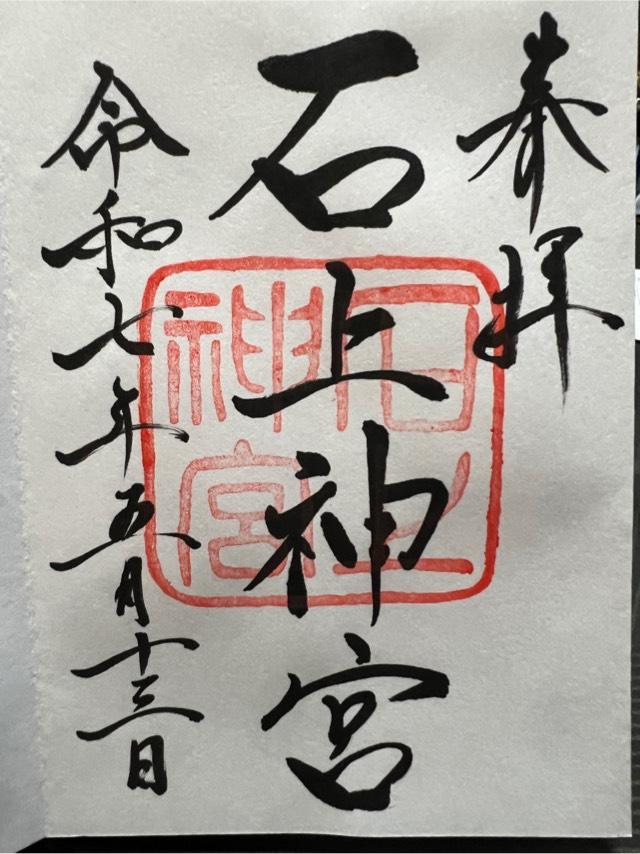 奉拝
石上神宮
石上神宮
令和七年五月十三日